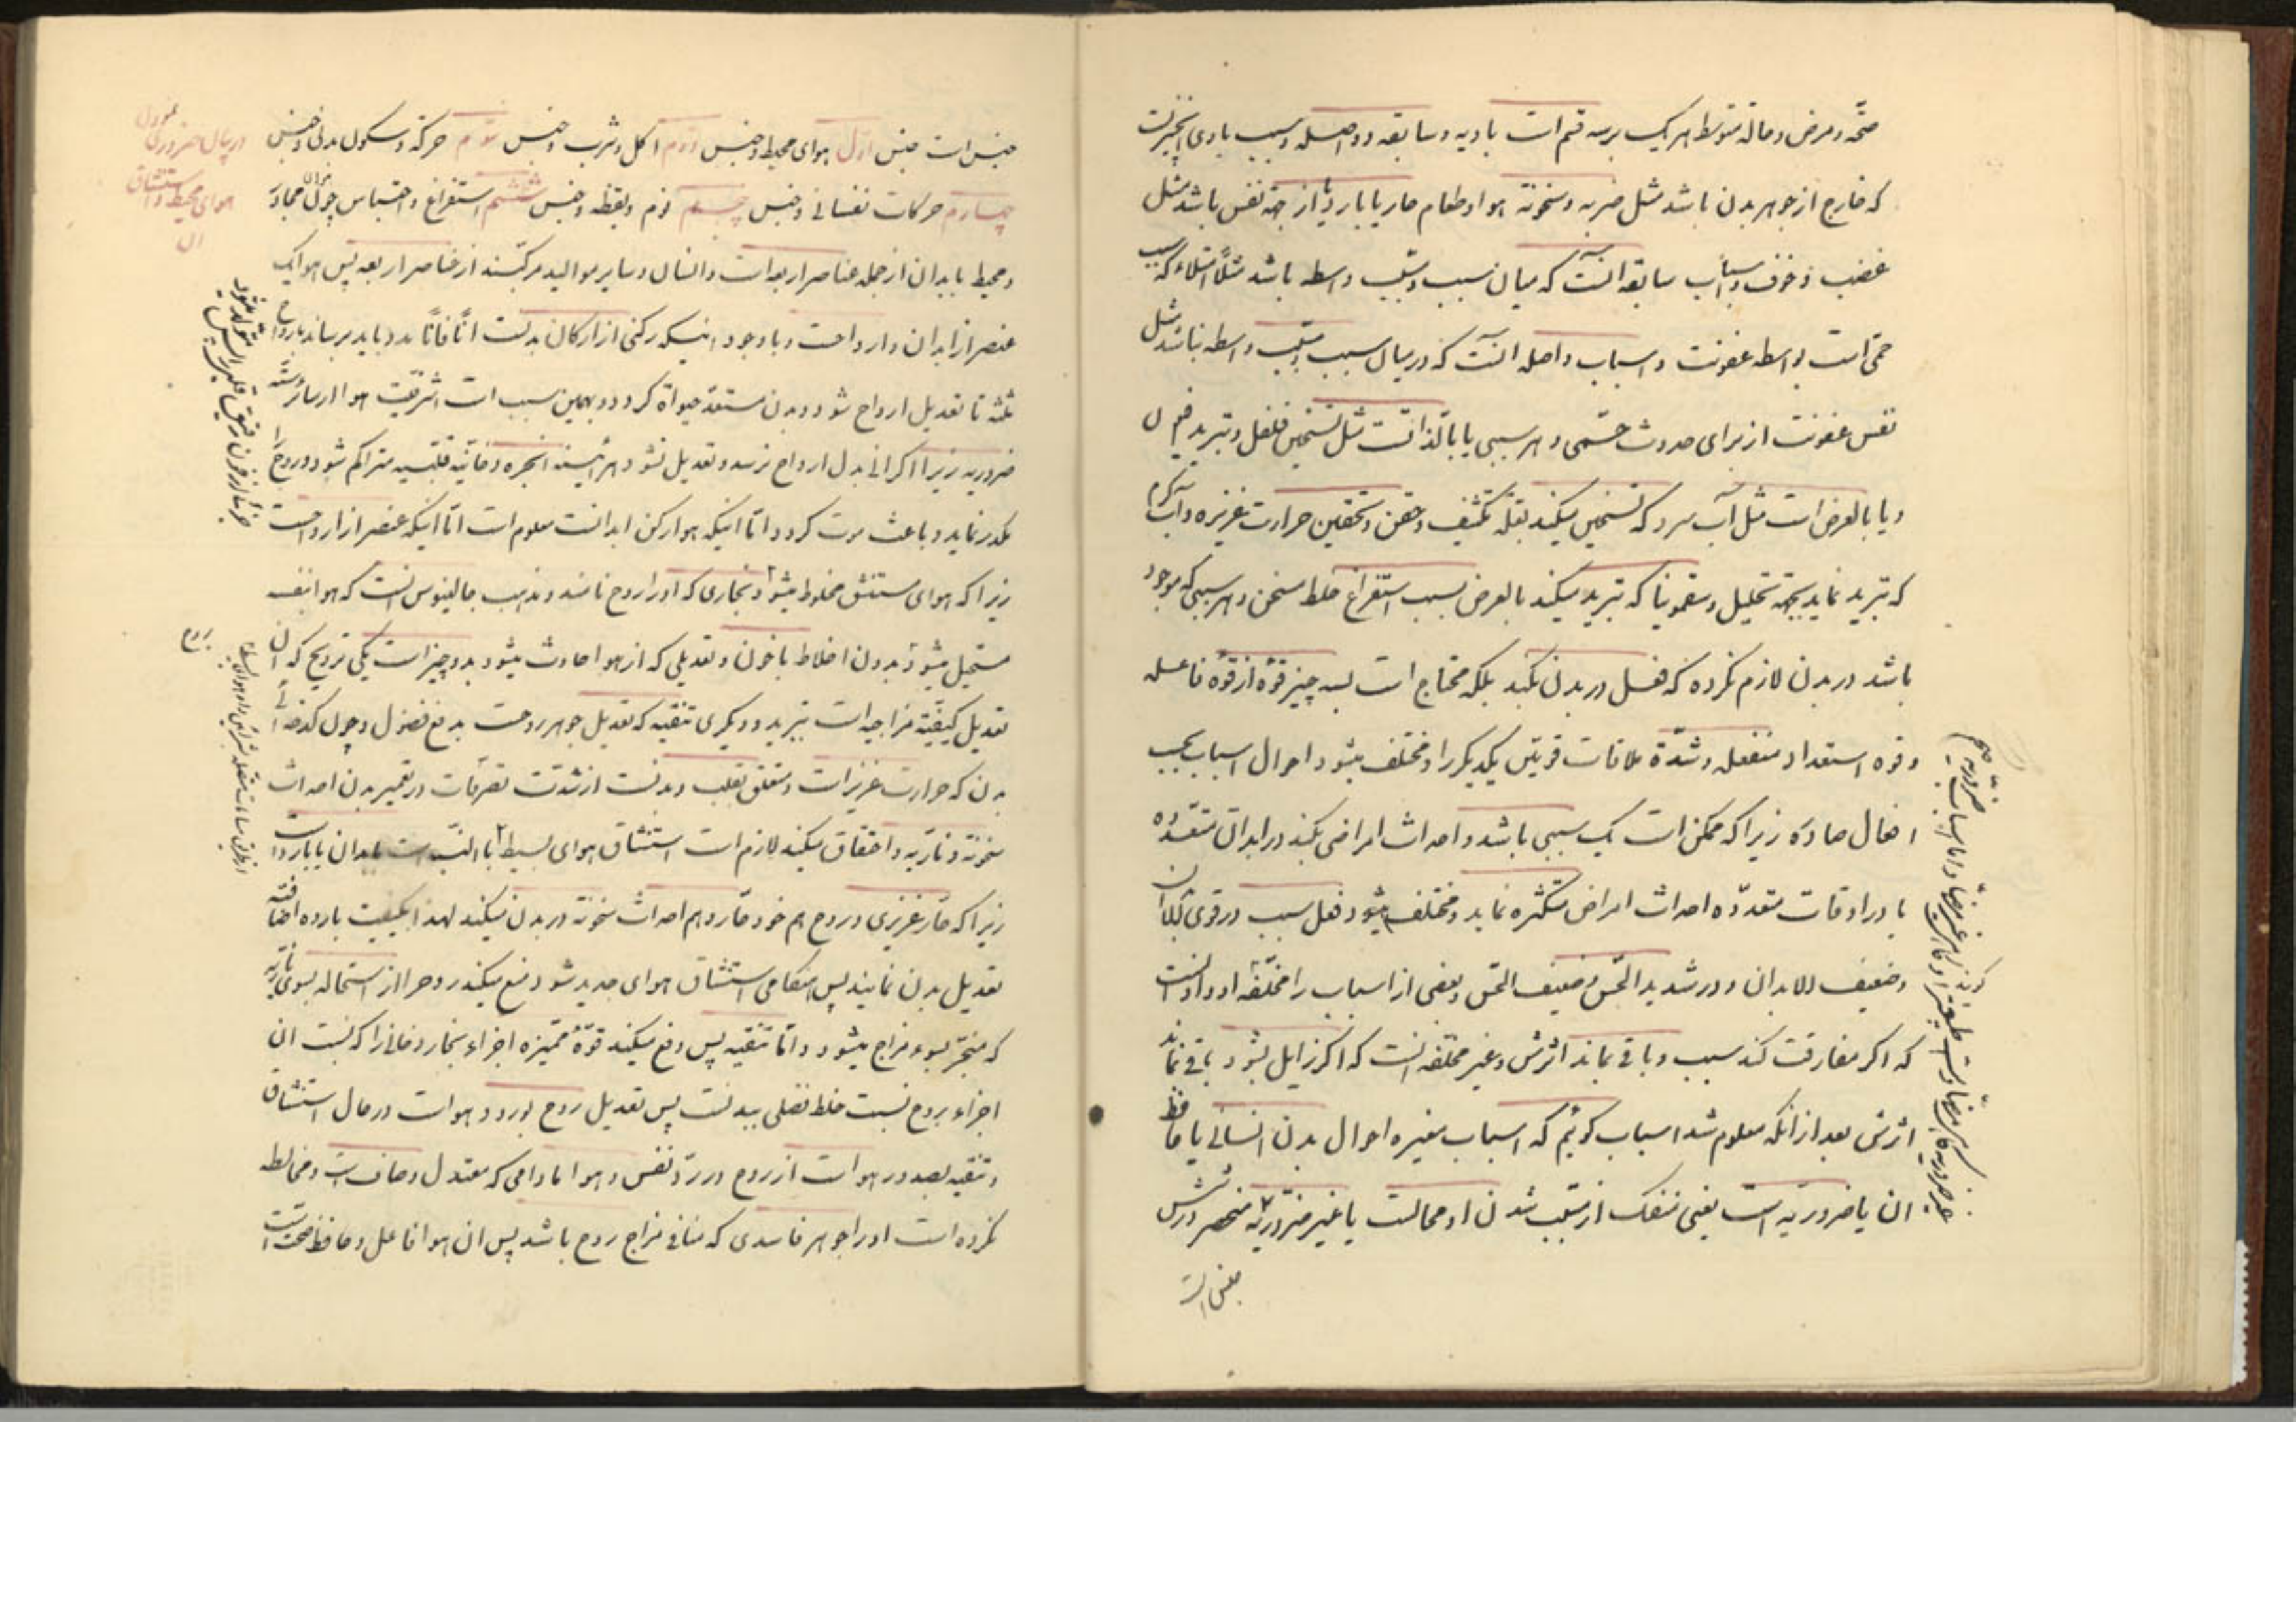 صحّة و مرض و حالة متوسط هر یک بر سه قسم است بادیه و سابقه و واصله و سبب بادی آن چیزیست
که خارج از جوهر بدن باشد مثل ضربه و سخونة هوا و طعام حار یا بارد و یا از جهة نفس باشد مثل
غضب و خوف و اسباب سابقه آنست که میان سبب و مسبّب واسطه باشد مثلاً امتلاء که سبب
حمّی است بواسطه عفونت و اسباب واصله آنست که در میان سبب و مسبّب واسطه نباشد مثل
نفس عفونت از برای حدوث حمّی و هر سببی یا بالذاتست مثل تسخین فلفل و تبرید افیون
و یا بالعرض است مثل آب سرد که تسخین میکند بعلّة تکثیف و حقن و تحقین حرارت غریزه و آب گرم
که تبرید نماید بجهة تحلیل و سقمونیا که تبرید میکند بالعرض بسبب استفراغ خلط مسخن و هر سببی که موجود
باشد در بدن لازم نکرده که فعل در بدن بکند بلکه محتاج است بسه چیز قوّه از قوّه فاعله
و قوه استعداد منفعله و شدّة ملاقات قوتین یکدیگر را و مختلف میشود احوال اسباب بحسب
افعال صادره زیرا که ممکن است یک سببی باشد و احداث امراضی بکند در ابدان متعدّده
یا در اوقات متعدّده احداث امراض متکثره نماید و مختلف میشود فعل سبب در قوی الابدان
و ضعیف الابدان و در شدید الحسّ و ضعیف الحسّ و بعضی از اسباب را مخلّفه او و او آنست
که اگر مفارقت کند سبب و باقی بماند اثرش و غیر مخلّفه آنست که اگر زایل بشود باقی نماند
اثرش بعد از آنکه معلوم شد اسباب گوئیم که اسباب مغیره احوال بدن انسانی یا حافظ
آن یا ضروریّه است یعنی منفک از مسبّب شدن او محالست یا غیر ضروریّه منحصر در شش
جنس است
جنس است جنس اول هوای محیط و جنس دوم اکل و شرب و جنس سوم حرکة و سکون بدنی و جنس
چهارم حرکات نفسانی و جنس پنجم نوم و یقظه و جنس ششم استفراغ و احتباس چون هوای مجاور
و محیط بابدان از جمله عناصر اربعه است و انسان و سایر موالید مرکبند از عناصر اربعه پس هوا یک
عنصر از ابدان و ارواحست و با وجود اینکه رکنی از ارکان بدنست آناً فآناً مدد باید برساند بارواح
ثلثه تا تعدیل ارواح شود و بدن مستعدّ حیواة گردد و بهمین سبب است اشرفیّت هوا از سایر ستّه
ضروریه زیرا اگر آنی بدل ارواح نرسد و تعدیل نشود هر آینه ابخره دخانیّه قلبیه متراکم شود و روح را
مکدر نماید و باعث موت گردد و امّا اینکه هوا رکن ابدانست معلوم است امّا اینکه عنصر از ارواحست
زیرا که هوای مستنشق مخلوط میشود بخاری که او را روح نامند و مذهب جالینوس آنست که هوا بنفسه
مستحیل میشود بدون اخلاط با خون و تعدیلی که از هوا حادث میشود بدو چیز است یکی ترویح که آن
تعدیل کیفیّة مزاجیه است بتبرید و دیگری تنقیه که تعدیل جوهر روحست بدفع فضول و چون کدخدائی
بدن که حرارت غریز است و متعلق بقلب و بدنست از شدّت تصرفات در تعمیر بدن احداث
سخونة و ناریّه و احتقان میکند لازم است استنشاق هوای بسیط تا بالنسبت بابدان یا بارد است
زیرا که حار غریزی و روح هم خود حار و هم احداث سخونة در بدن میکند لهذا بکیفیت بارده اضافّه
تعدیل بدن نمایند پس هنگامی استنشاق هوای جدید شود منع میکند روح را از استحاله بسوی ناریّه
که منجرّ بسوء مزاج میشود و امّا تنقیه پس دفع میکند قوّة ممیّزه اجزاء بخار دخانی را که نسبت آن
اجزاء بروح نسبت خلط فضلی ببدنست پس تعدیل روح بورود هواست در حال استنشاق
و تنقیه بصدور هواست از روح در ردّ نفس و هوا مادامی که معتدل و صاف است و مخالطه
نکرده است او را جوهر فاسدی که منافی مزاج روح باشد پس آن هوا فاعل و حافظ صحّت است
در بیان ضروری
هوای محیط و استنشاق
آن